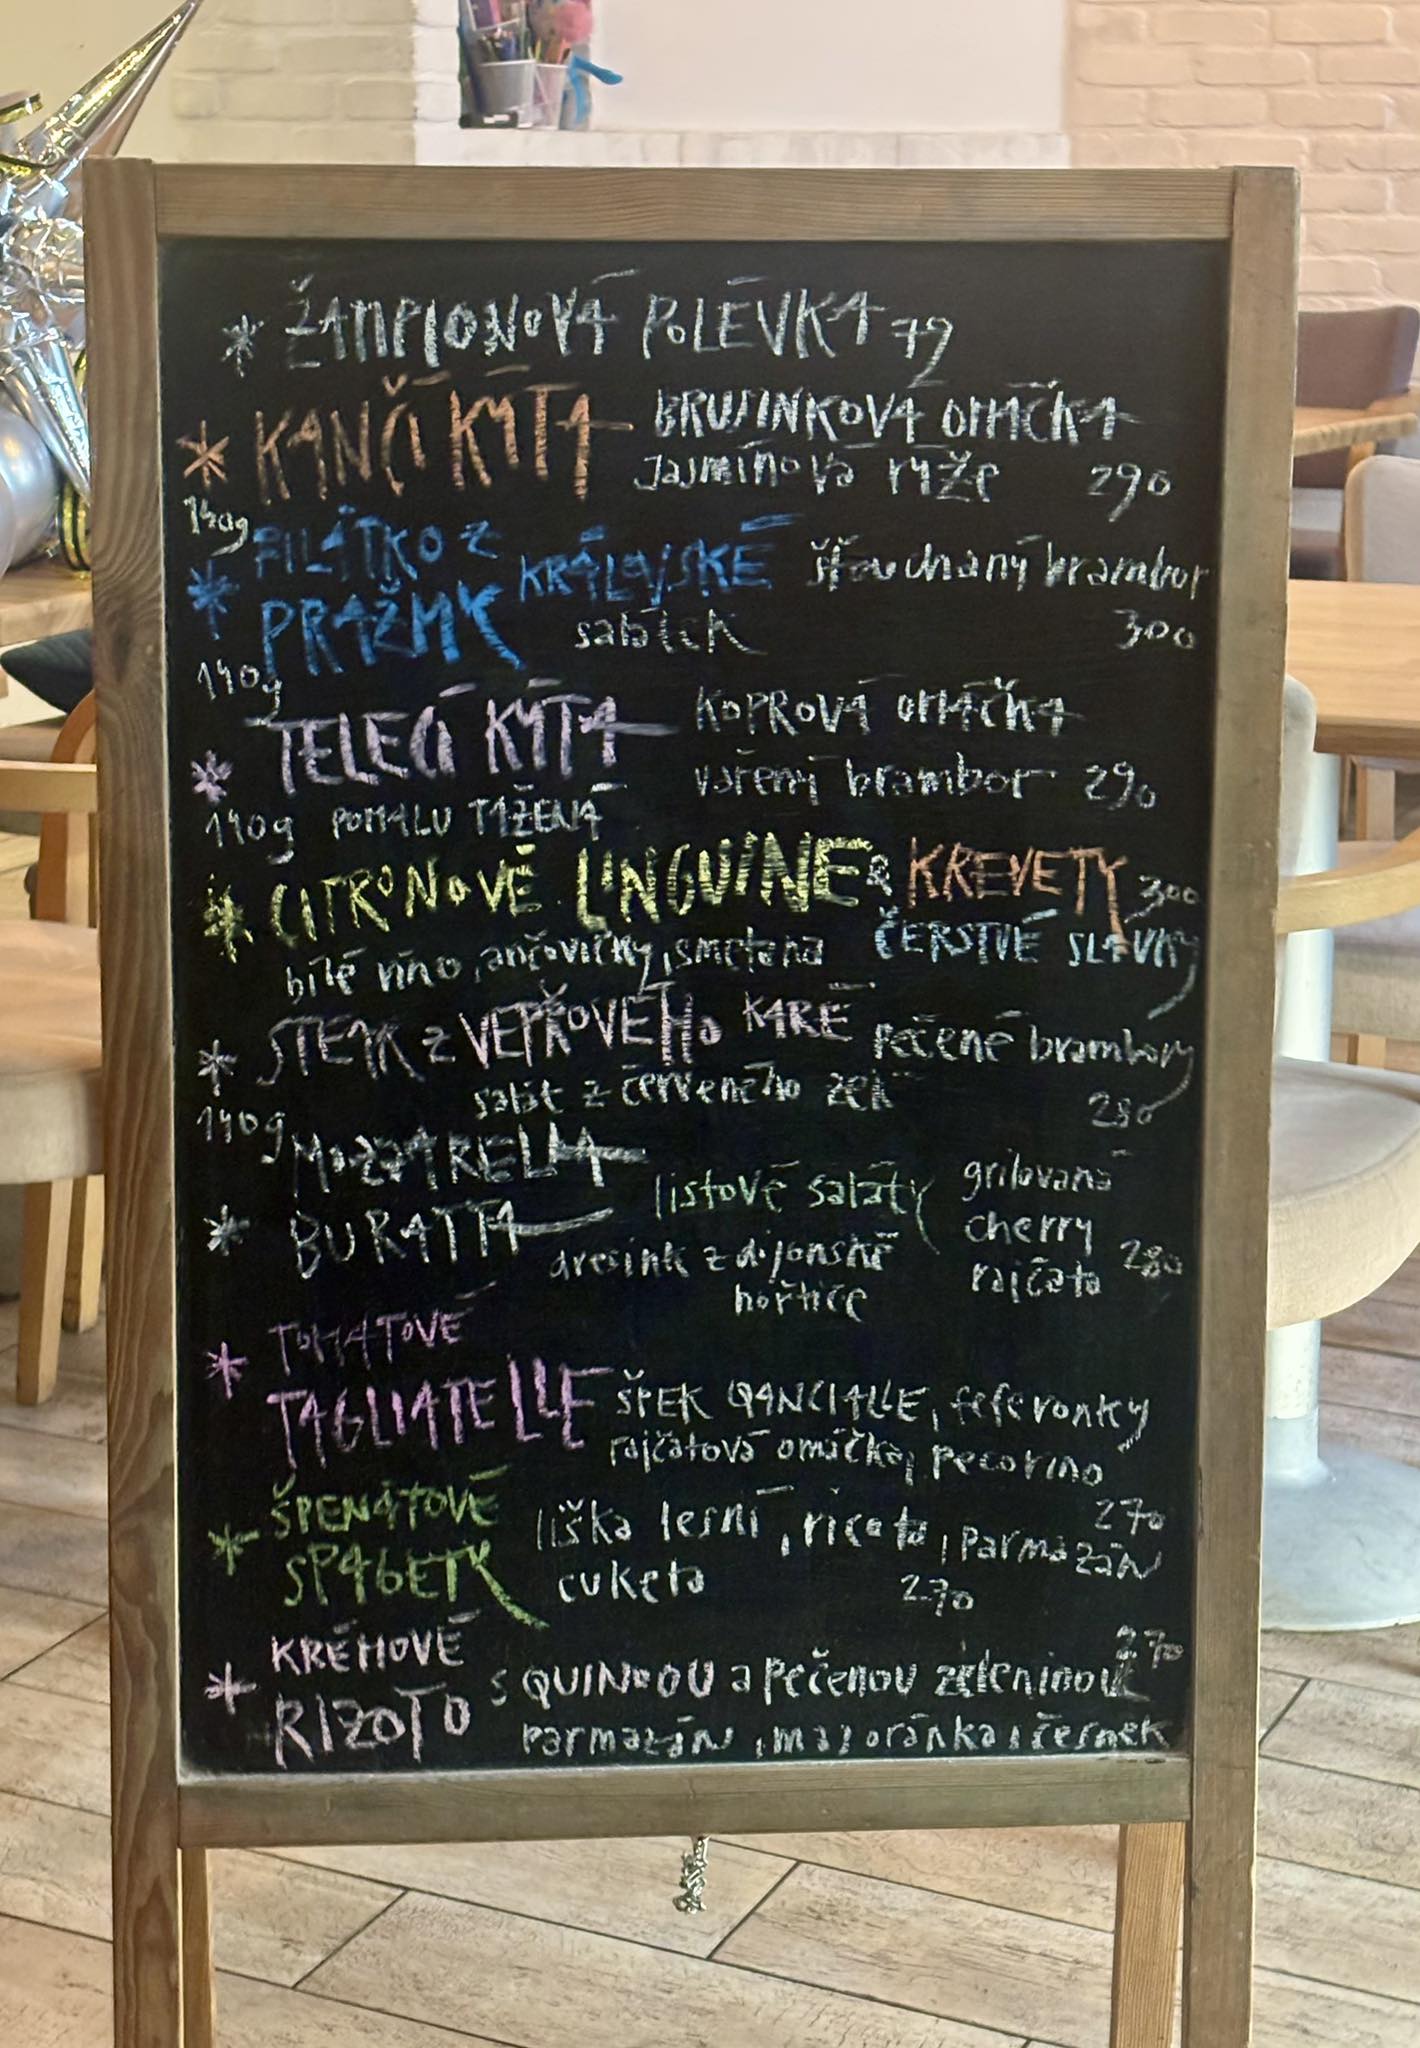 * ŽAMPIONOVÁ POLÉVKA 79
* KANČÍ KÝTA BRUSINKOVÁ OMÁČKA
jasmínová rýže 290
140g
* FILÁTKO Z KRÁLOVSKÉ šťouchaný brambor
PRAŽMY salátek 300
140g
* TELECÍ KÝTA KOPROVÁ OMÁČKA
vařený brambor 290
140g POMALU TAŽENÁ
* CITRONOVÉ LINGUINE & KREVETY 300
bílé víno, ančovičky, smetana ČERSTVÉ SLÁVKY
* STEAK z VEPŘOVÉHO KARÉ pečené brambory
salát z červeného zelí 280
140g
MOZZARELLA
* BURATTA listové saláty grilovaná
dresink z dijonské cherry
hořčice rajčata 280
TOMATOVÉ
* TAGLIATELLE ŠPEK QANCIALLE, feferonky
rajčatová omáčka, pecorino
270
ŠPENÁTOVÉ
* SPAGETY liška lesní, ricota, parmazán
cuketa 270
KRÉMOVÉ
* RIZOTO S QUINOOU a pečenou zeleninou 270
parmazán, majoránka, česnek